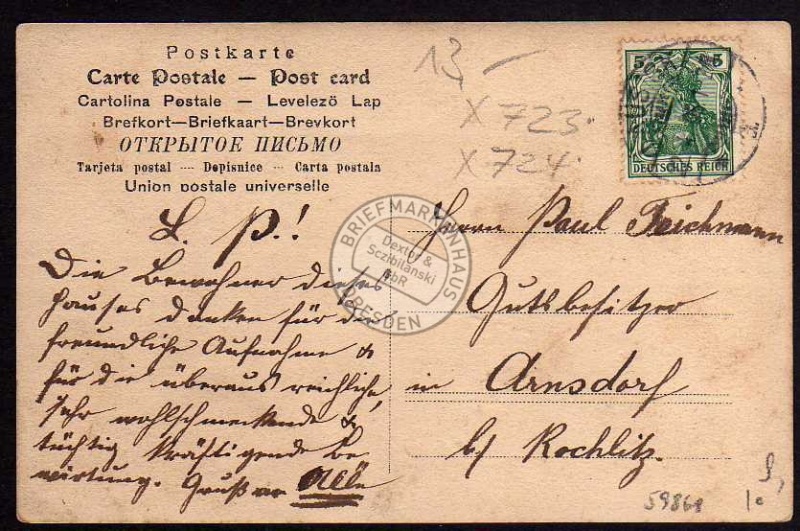 Postkarte
Carte Postale — Post card
Cartolina Postale — Levelező Lap
Brefkort—Briefkaart—Brevkort
ОТКРЫТОЕ ПИСЬМО
Tarjeta postal — Dopisnice — Carta postala
Union postale universelle
13,—
X 723.
X 724.
5 5
DEUTSCHES REICH
L. P.!
Die Bewohner dieses
Hauses danken für die
freundliche Aufnahme &
für die überaus reichliche,
sehr wohlschmeckende &
tüchtig kräftigende Be
wirtung. Gruß an Alle
Herrn Paul Teichmann
Gutsbesitzer
in Arnsdorf
b/ Rochlitz.
BRIEFMARKENHAUS
Dexter &
Sczibilanski
GbR
DRESDEN
59868